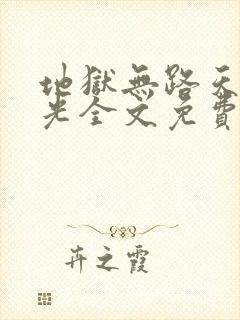 地獄無路天
光全文免費
卉之霞